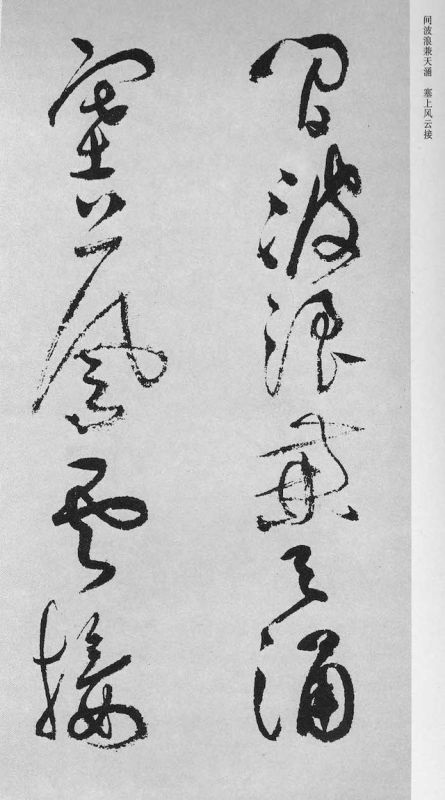 间波浪兼天涌　塞上风云接
间波浪兼天涌
塞上风云接